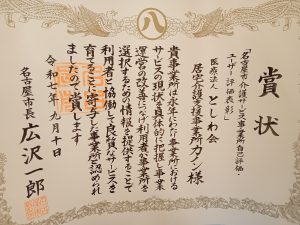 賞状
「名古屋市介護サービス事業所自己評価・
ユーザー評価表彰」
医療法人 としわ会
居宅介護支援事業所カノン 様
貴事業所は永年にわたり事業所における
サービスの現状を具体的に把握し事業
運営の改善につなげ利用者が事業所を
選択するための情報を提供することで
利用者と協働して良質なサービスを
育てることに寄与した事業所と認められ
ましたので賞します
令和七年九月十日
名古屋市長 広沢一郎